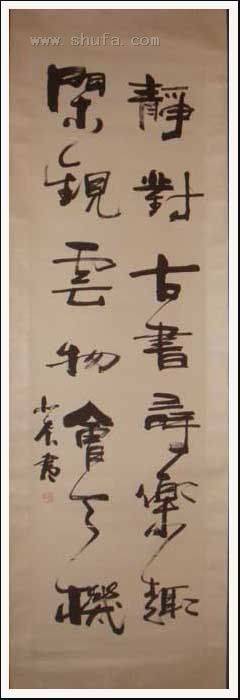 www.shufa.com
靜對古書尋樂趣
閑觀雲物會天機